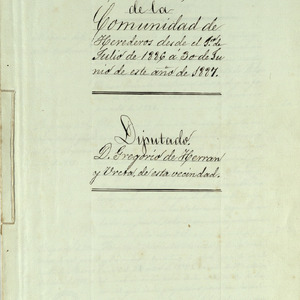 de la
Comunidad de
Herederos desde el 1º de
Julio de 1886 a 30 de Ju
nio de este año de 1887.
Diputado.
D. Gregorio de Herran
y Ureta, de esta vecindad.